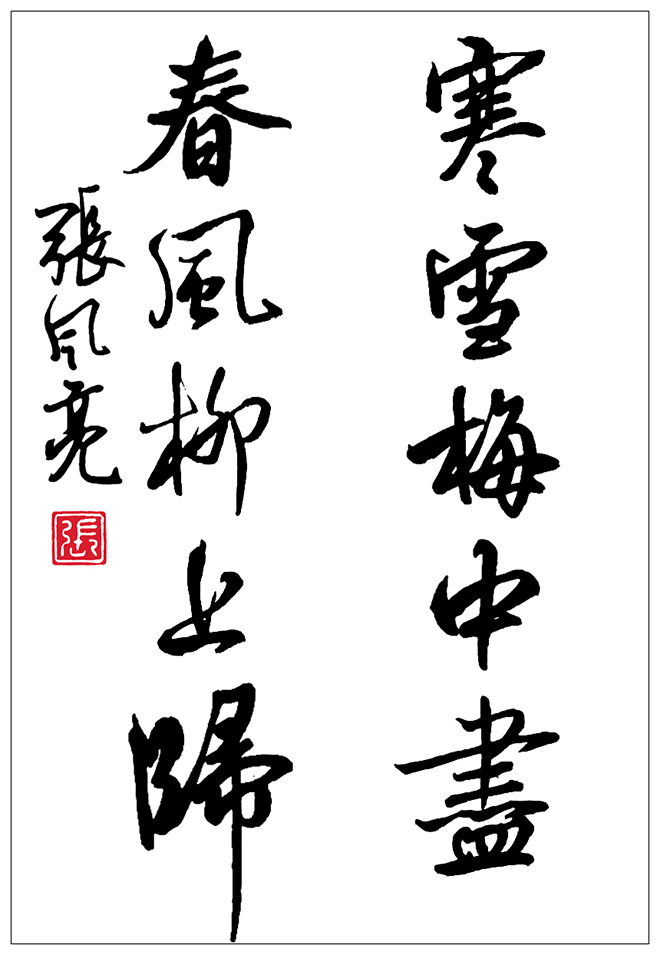 寒雪梅中盡
春風柳上歸
張风亮
張